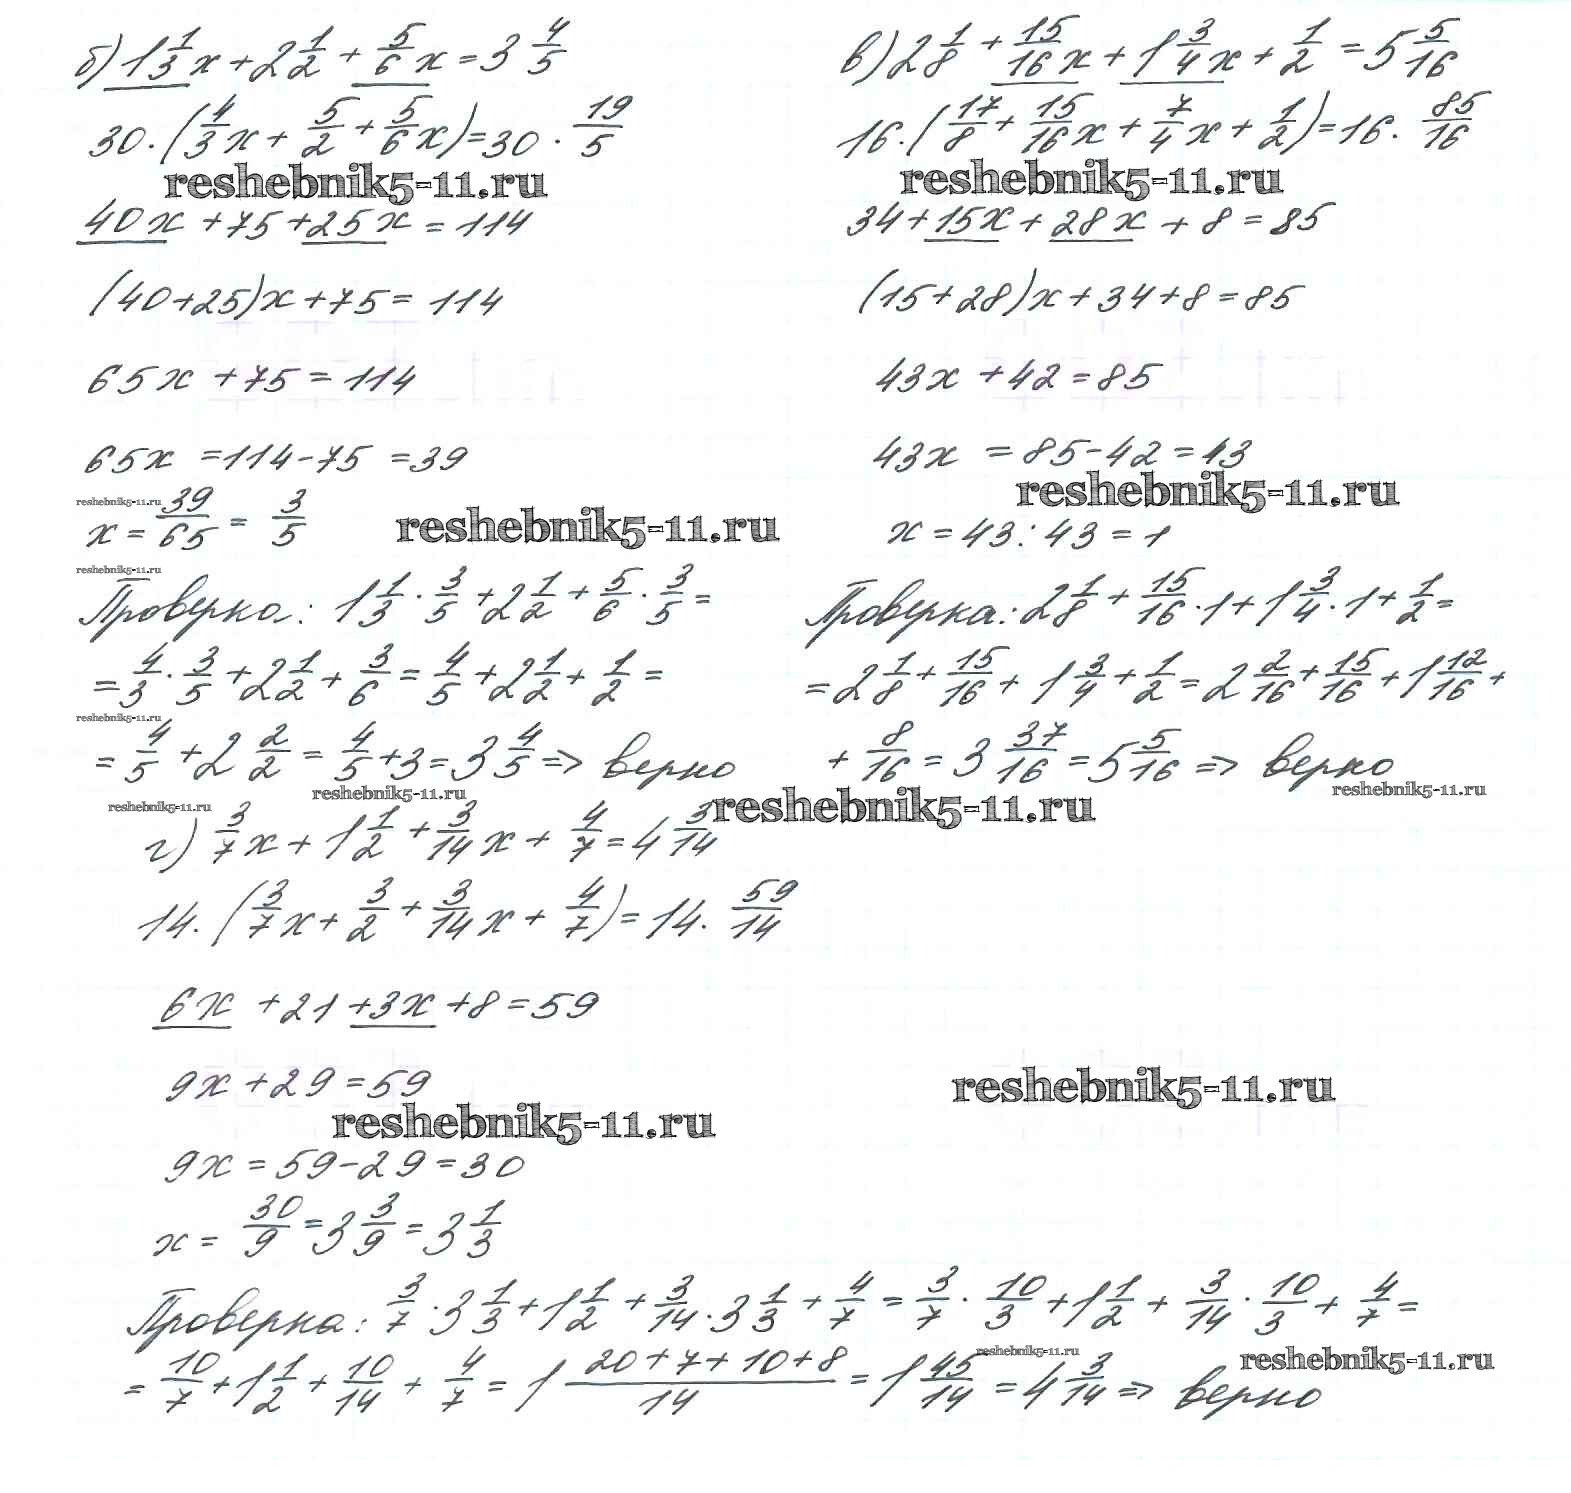 б) 1 1/3 x + 2 1/2 + 5/6 x = 3 4/5
30 · (4/3 x + 5/2 + 5/6 x) = 30 · 19/5
reshebnik5-11.ru
40x + 75 + 25x = 114
(40 + 25)x + 75 = 114
65x + 75 = 114
65x = 114 - 75 = 39
reshebnik5-11.ru
x = 39/65 = 3/5
reshebnik5-11.ru
reshebnik5-11.ru
Проверка: 1 1/3 · 3/5 + 2 1/2 + 5/6 · 3/5 =
= 4/3 · 3/5 + 2 1/2 + 3/6 = 4/5 + 2 1/2 + 1/2 =
reshebnik5-11.ru
= 4/5 + 2 2/2 = 4/5 + 3 = 3 4/5 => верно
reshebnik5-11.ru
reshebnik5-11.ru
в) 2 1/8 + 15/16 x + 1 3/4 x + 1/2 = 5 5/16
16 · (17/8 + 15/16 x + 7/4 x + 1/2) = 16 · 85/16
reshebnik5-11.ru
34 + 15x + 28x + 8 = 85
(15 + 28)x + 34 + 8 = 85
43x + 42 = 85
43x = 85 - 42 = 43
reshebnik5-11.ru
x = 43 : 43 = 1
Проверка: 2 1/8 + 15/16 · 1 + 1 3/4 · 1 + 1/2 =
= 2 1/8 + 15/16 + 1 3/4 + 1/2 = 2 2/16 + 15/16 + 1 12/16 +
+ 8/16 = 3 37/16 = 5 5/16 => верно
reshebnik5-11.ru
reshebnik5-11.ru
г) 3/7 x + 1 1/2 + 3/14 x + 4/7 = 4 3/14
14 · (3/7 x + 3/2 + 3/14 x + 4/7) = 14 · 59/14
6x + 21 + 3x + 8 = 59
9x + 29 = 59
reshebnik5-11.ru
reshebnik5-11.ru
9x = 59 - 29 = 30
x = 30/9 = 3 3/9 = 3 1/3
Проверка: 3/7 · 3 1/3 + 1 1/2 + 3/14 · 3 1/3 + 4/7 = 3/7 · 10/3 + 1 1/2 + 3/14 · 10/3 + 4/7 =
reshebnik5-11.ru
reshebnik5-11.ru
= 10/7 + 1 1/2 + 10/14 + 4/7 = 1 (20+7+10+8)/14 = 1 45/14 = 4 3/14 => верно